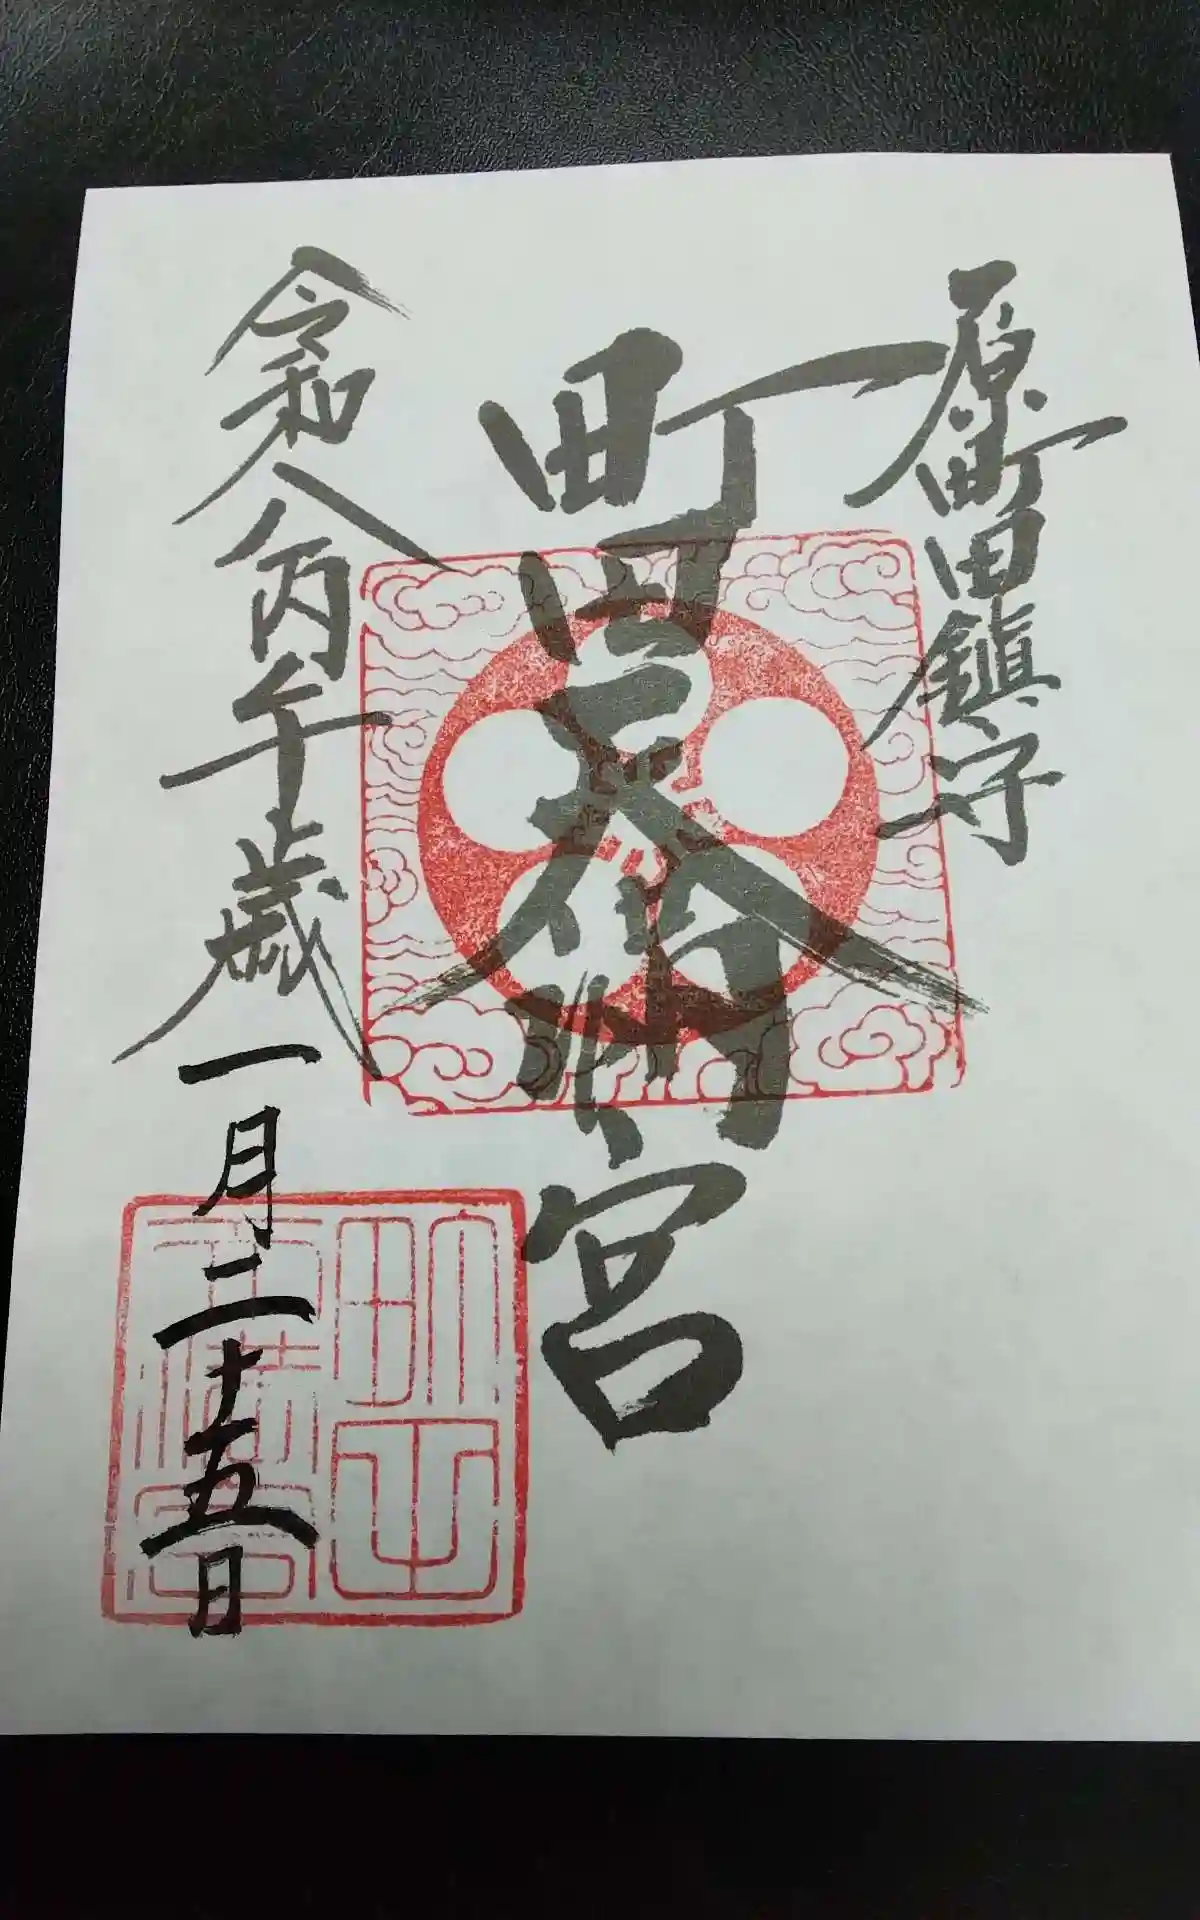 原町田鎮守
町田天満宮
令和八丙午歳一月二十五日
町田天満宮